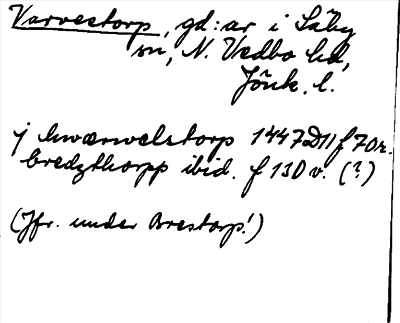 Varvestorp, gd:ar i Säby
sn, N. Vedbo hd,
Jönk. l.
j hwærwelstorp 1447 D11 f 70r.
bredzthorpp ibid. f 130 v. (?)
(Jfr. under Brestorp!)